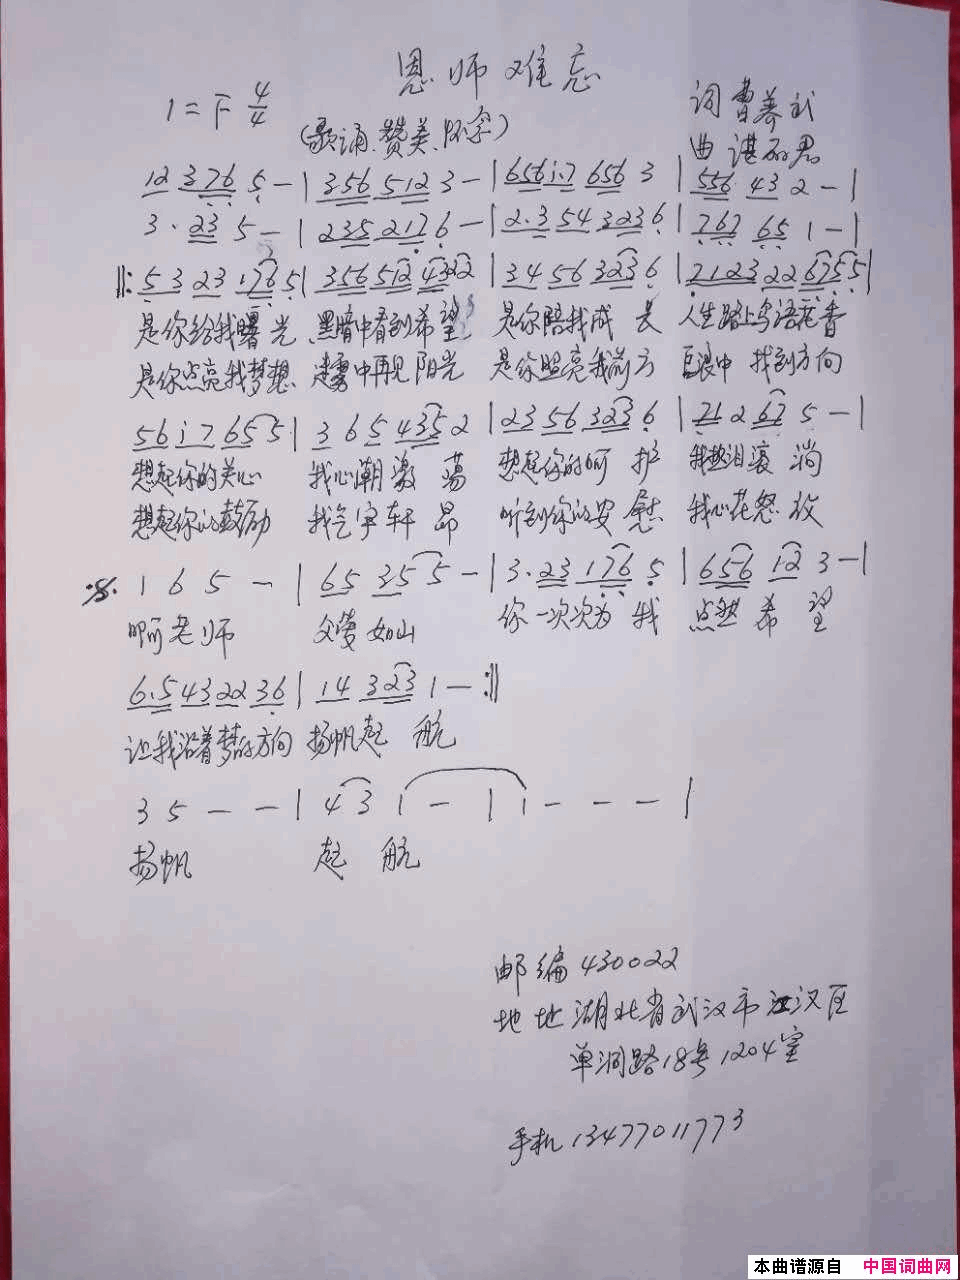 恩师难忘
1=F 4/4
(歌诵、赞美、怀念)
词 曹养武
曲 谌石君
12 376 5 - | 356 512 3 - | 656i·7 656 3 | 556 43 2 - |
3· 23 5 - | 235 217 6 - | 2·3 54 323 6 | 767 65 1 - |
‖: 53 23 176 5 | 356 512 4322 | 34 56 323 6 | 2123 22 6755 |
是你给我曙光 黑暗中看到希望 是你陪我成长 人生路上鸟语花香
是你点亮我梦想 迷雾中再见阳光 是你照亮我前方 巨浪中找到方向
56 i7 65 5 | 3 65 435 2 | 23 56 323 6 | 21 2 67 5 - |
想起你的关心 我心潮激荡 想起你的呵护 我热泪滚淌
想起你的鼓励 我气宇轩昂 听到你的安慰 我心花怒放
1 6 5 - | 65 35 5 - | 3· 23 176 5 | 656 12 3 - |
啊老师 父爱如山 你一次次为我 点燃希望
6·5 43 22 36 | 14 323 1 - :‖
让我沿着梦的方向 扬帆起航
3 5 - - | 4 3 1 - | 1 - - - |
扬帆 起航
邮编 430022
地址 湖北省武汉市江汉区
单洞路18号1204室
手机 13477011773
本曲谱源自 中国词曲网